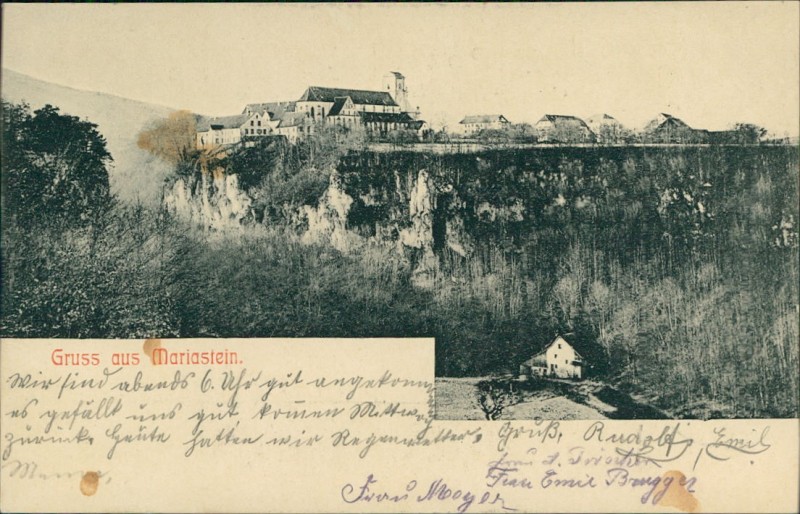 Gruss aus Mariastein.
Wir sind abends 6. Uhr gut angekomm
es gefällt uns gut, kom̄en Mittw
zurück. Heute hatten wir Regenwetter. Gruß, Rudolf, Emil
Frau Emil Brugger
Frau Moyer